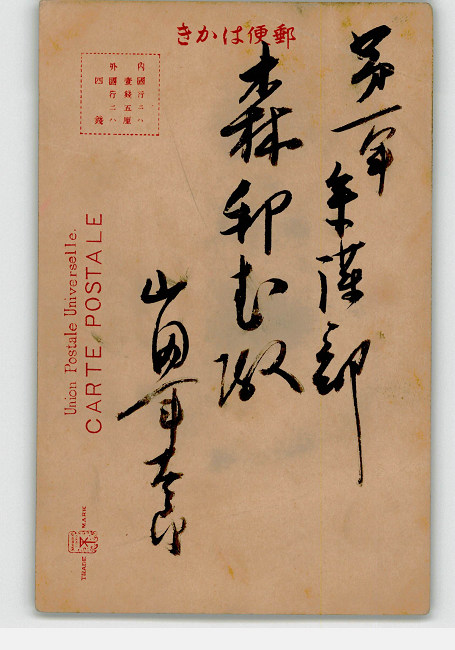 郵便はかき
内國行ニハ
壹錢五厘
外國行ニハ
四錢
第一軍
部
森
殿
山田
太郎
Union Postale Universelle.
CARTE POSTALE
TRADE MARK